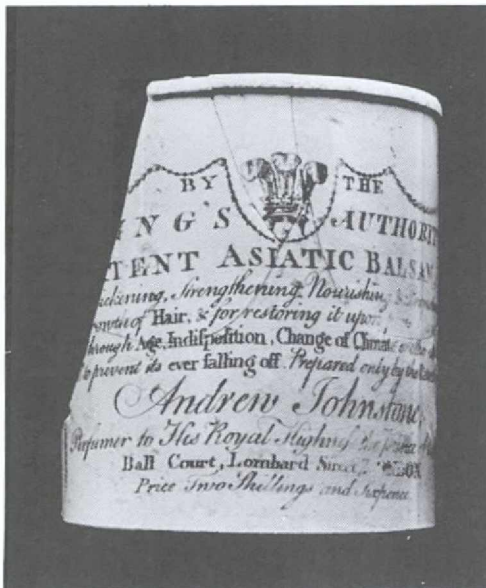 BY THE
ING'S AUTHORIT
TENT ASIATIC BALSAM
ckening, Strengthening, Nourishing &
rowth of Hair, & for restoring it upon
through Age, Indisposition, Change of Climate
to prevent its ever falling off. Prepared only by the
Andrew Johnstone,
Perfumer to His Royal Highness the prince
Ball Court, Lombard Street,
Price Two Shillings and Sixpence